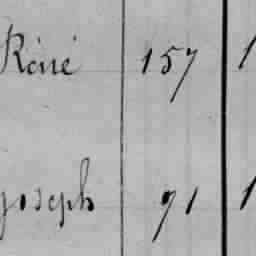 Réné 157 1
Joseph 71 1